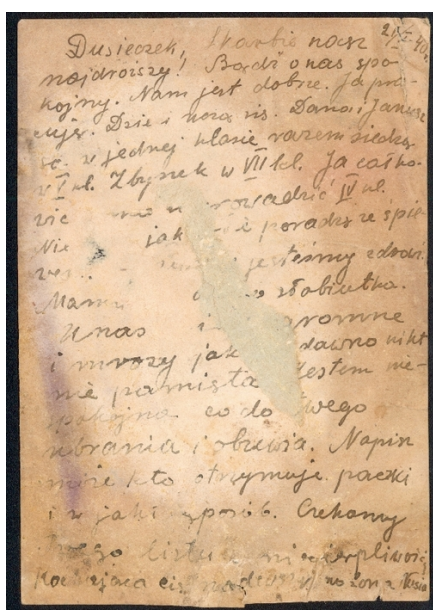 21/I 40 r.
Dusieczek, Skarbie nasz
najdroższy! Bądź o nas spo-
kojny. Nam jest dobrze. Ja pra-
cuję. Dzieci uczą się. Danai Janusz
są w jednej klasie razem siedzą
w I kl. Zbynek w VII kl. Ja całko-
wicie prowadzić IV kl.
Nie jak poradzę ze śpie-
wem. jesteśmy zdrowi.
Mamu słabiutka.
U nas i ogromne
i mrozy jak dawno nikt
nie pamięta Jestem nie-
spokojna co do Twego
ubrania i obuwia. Napisz
może kto otrzymuje paczki
i w jaki sposób. Czekamy
Twego listu z niecierpliwością
Kochająca Cię żona